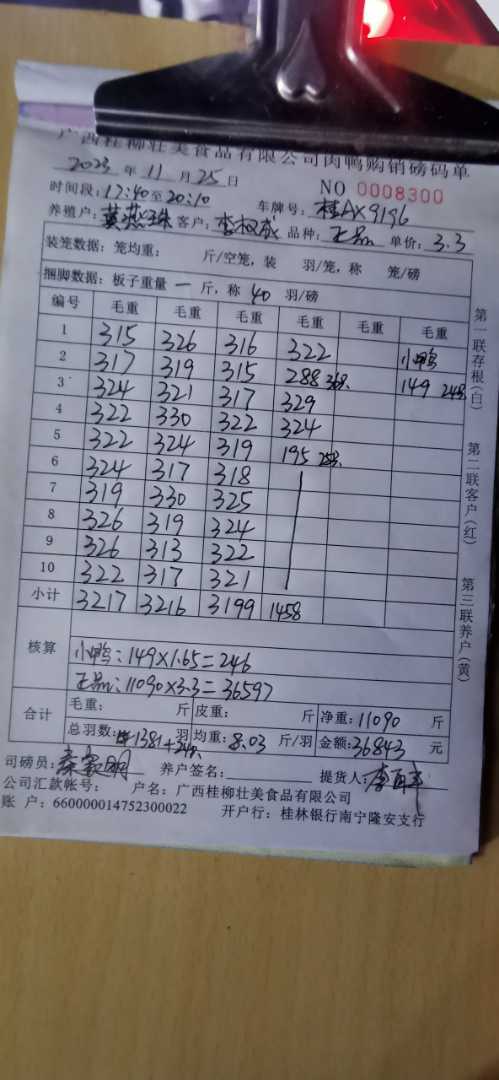 广西桂柳壮美食品有限公司肉鸭购销磅码单
2023 年 11 月 25 日 NO 0008300
时间段:17:40至20:10 车牌号:桂AX9196
养殖户:黄燕珠 客户:李权成 品种:正品 单价:3.3
装笼数据:笼均重: 斤/空笼,装 羽/笼,称 笼/磅
捆脚数据:板子重量 一 斤,称 40 羽/磅
编号 毛重 毛重 毛重 毛重 毛重 毛重
1 315 326 316 322 小鸭
2 317 319 315 288 36羽 149 24羽
3 324 321 317 329
4 322 330 322 324
5 322 324 319 195 25羽
6 324 317 318
7 319 330 325
8 326 319 324
9 326 313 322
10 322 317 321
小计 3217 3216 3199 1458
核算
小鸭:149×1.65=246
正品:11090×3.3=36597
合计 毛重: 斤 皮重: 斤 净重:11090 斤
总羽数:1381+24羽 羽 均重:8.03 斤/羽 金额:36843 元
司磅员: 养户签名: 提货人:
公司汇款帐号: 户名:广西桂柳壮美食品有限公司
账 户:660000014752300022 开户行:桂林银行南宁隆安支行
第一联存根(白)
第二联客户(红)
第三联养户(黄)